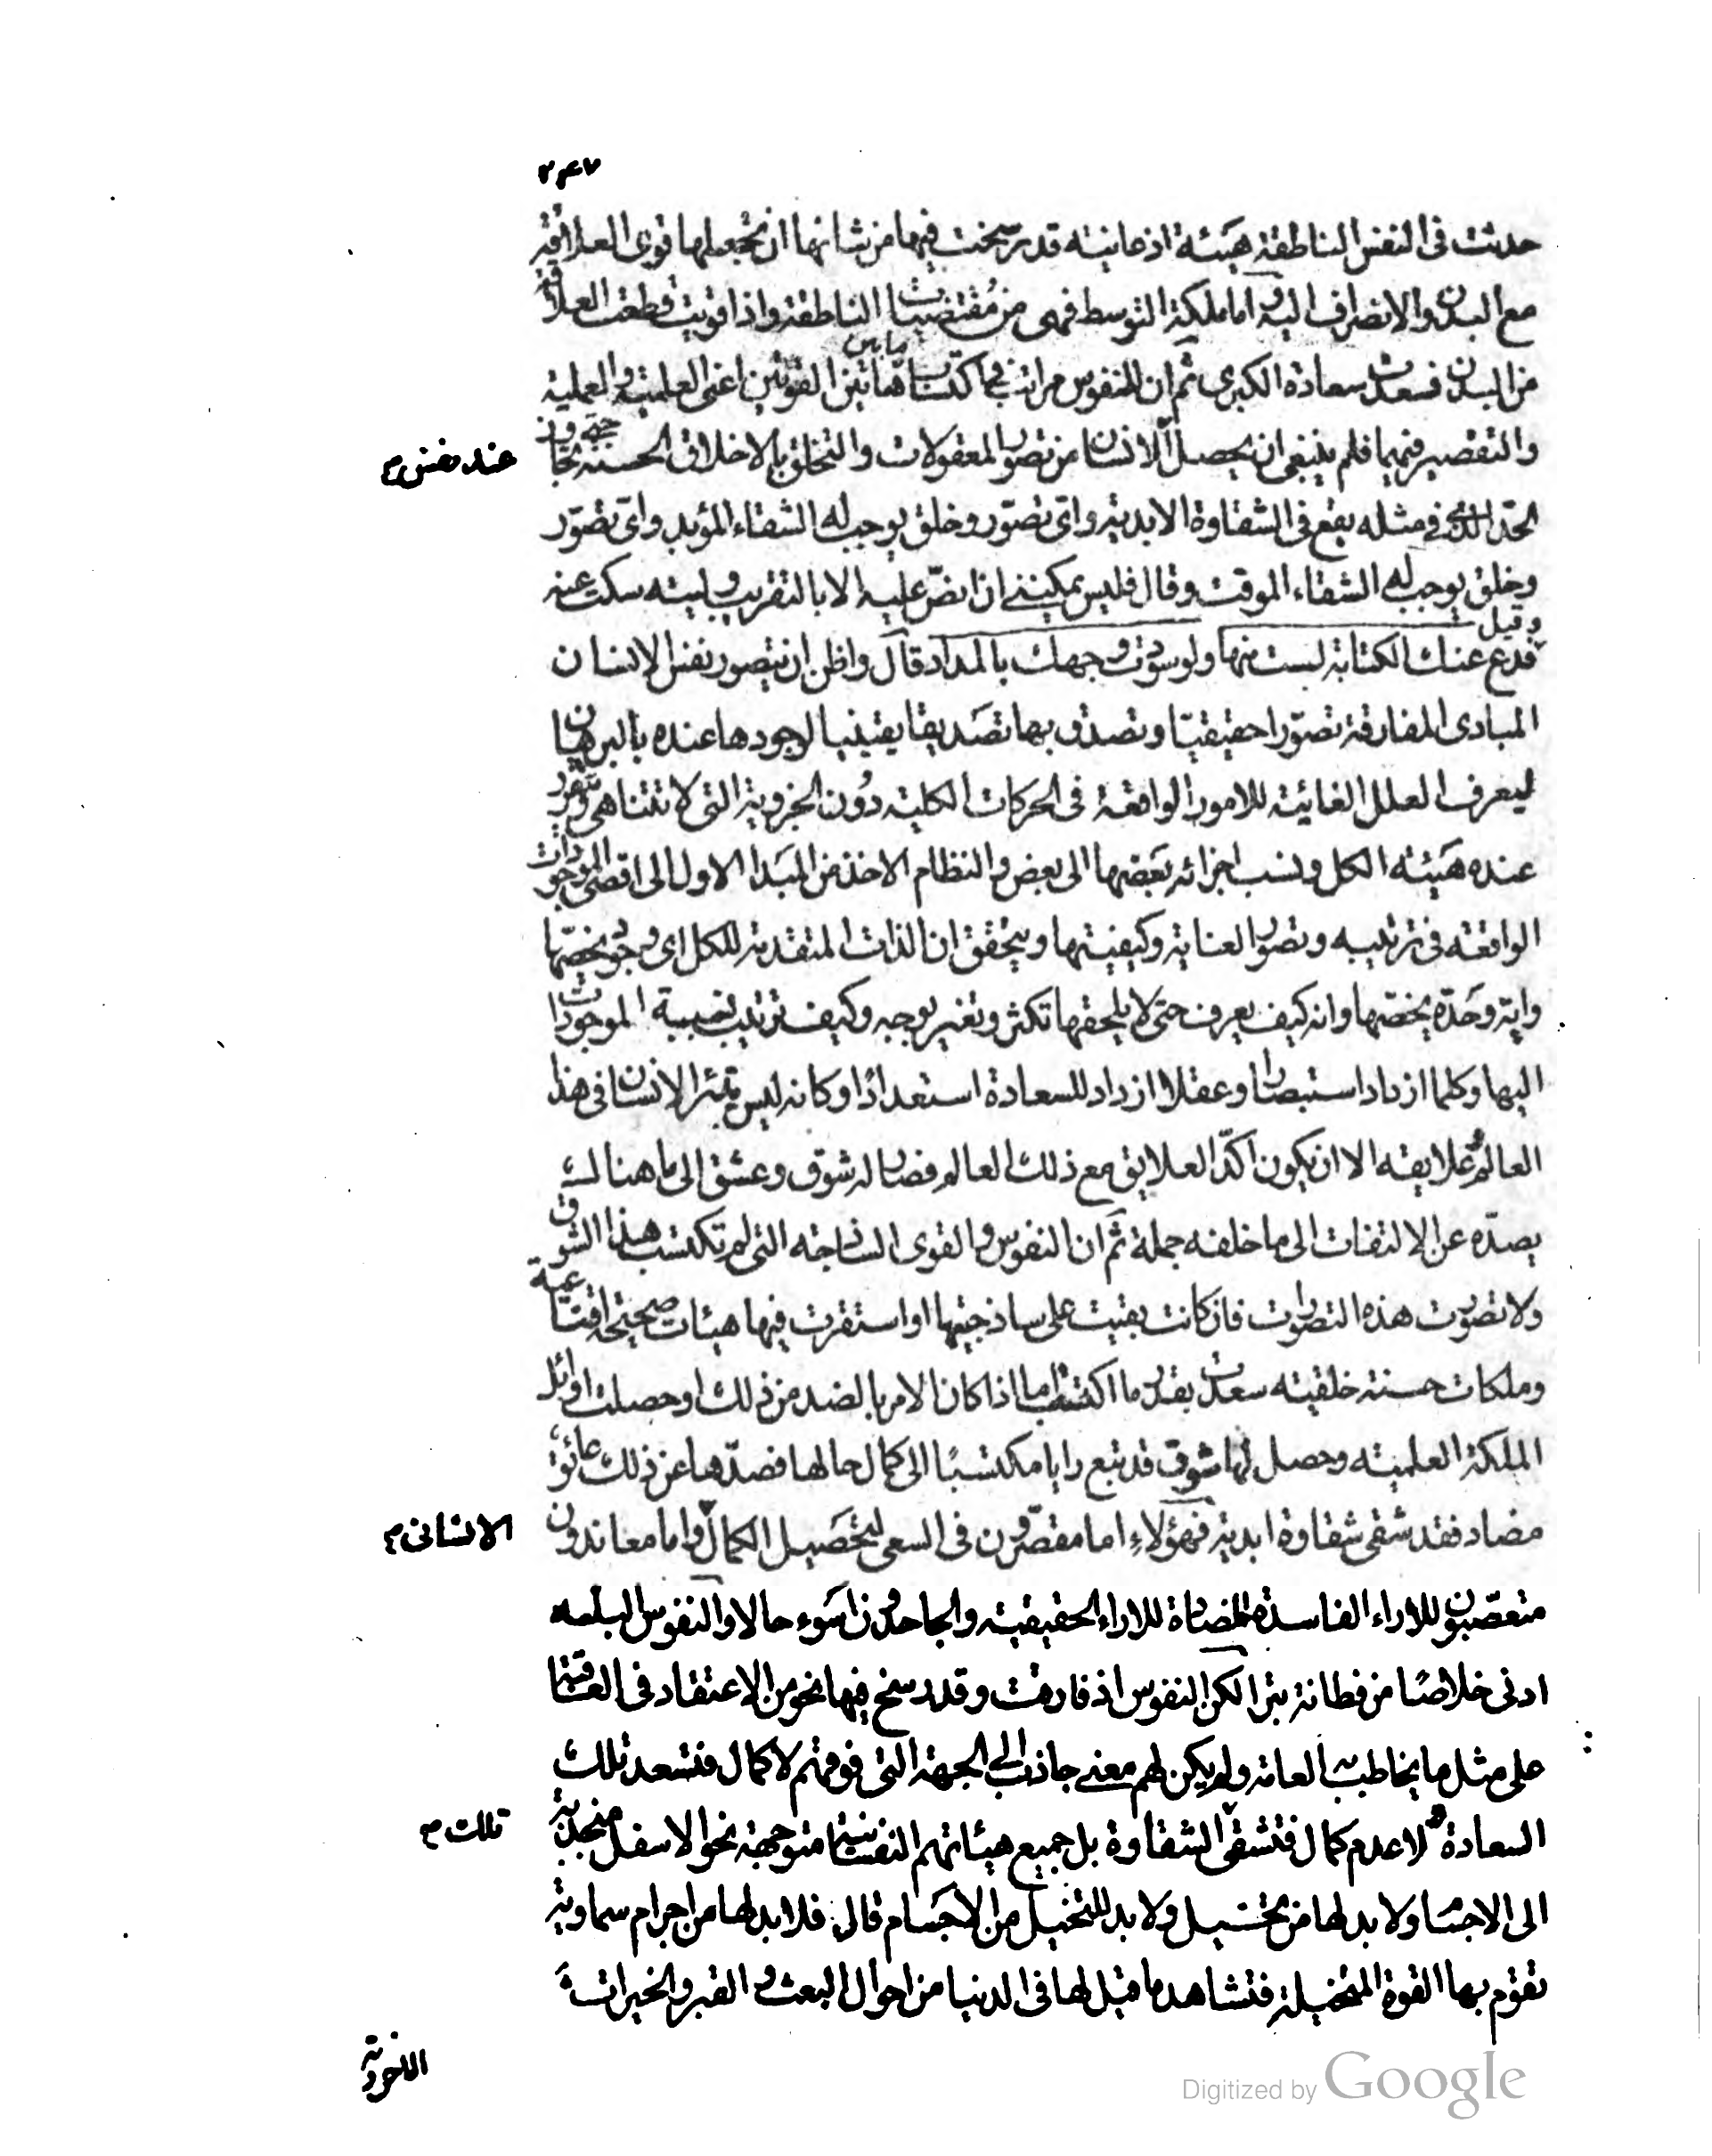 ٢٤٧
حدثت فى النفس الناطقة هيئة اذعانية قد رسخت فيها من شانها ان تجعلها قوى العلاقة
مع البدن والانصراف اليه واما ملكة التوسط فهى من مقتضيات الناطقة واذا قويت قطعت العلاقة
من البدن فسعدت سعادة الكبرى ثم ان للنفوس مراتب فى اكتساب هاتين القوتين اعنى العلمية والعملية
والتقصير فيهما فلم ينبغى ان يحصل للانسان من تصور المعقولات والتخلق بالاخلاق الحسنة
عند نفس
الحد الذى فى مثله يقع فى الشقاوة الابدية واى تصور وخلق يوجب له الشقاء المؤبد واى تصور
وخلق يوجب له الشقاء الموقت وقال فليس يمكننى ان انص عليه الا بالتقريب وليته سكت عنه
وقيل
فدع عنك الكتابة لست منها ولو سودت وجهك بالمداد قال واظن ان يتصور نفس الانسان
المبادى المفارقة تصورا حقيقيا وتصدق بها تصديقا يقينيا لوجودها عنده بالبرهان
ليعرف العلل الغائية للامور الواقعة فى الحركات الكلية دون الجزوية التى لا تتناهى وتتقرر
عنده هيئة الكل ونسب اجزائه بعضها الى بعض والنظام الاخذ من المبدا الاول الى اقصى الموجودات
الواقعة فى ترتيبه وتصور العناية وكيفيتها ويتحقق ان الذات المتقدمة للكل اى وجود يخصها
واية وحدة يخصها وانه كيف يعرف حتى لا يلحقها تكثر وتغير بوجه وكيف ترتيب نسبة الموجودات
اليها وكلما ازداد استبصارا وعقلا ازداد للسعادة استعدادا وكانه ليس يتبرا الانسان فى هذا
العالم وعلايقه الا ان يكون اكد العلايق مع ذلك العالم فصار له شوق وعشق الى ما هناك
يصده عن الالتفات الى ما خلفه جملة ثم ان النفوس والقوى الساذجة التى لم تكتسب هذا الشوق
ولا تصورت هذه التصورات فان كانت بقيت على ساذجيتها او استقرت فيها هيئات صحيحة اقناعية
وملكات حسنة خلقية سعدت بقدر ما اكتسبت اما اذا كان الامر بالضد من ذلك او حصلت اوائل
الملكة العلمية وحصل لها شوق قد تبع رايا مكتسبا الى كمال حالها فصدها عن ذلك عائق
مضاد فقد شقى شقاوة ابدية فهؤلاء اما مقصرون فى السعى لتحصيل الكمال واما معاندون
الانسانى
متعصبون للاراء الفاسدة المضادة للاراء الحقيقية والجاحدون اسوء حالا والنفوس البله
ادنى خلاصا من فطانة بترا لكن النفوس اذ فارقت وقد رسخ فيها نحو من الاعتقاد فى العاقبة
على مثل ما يخاطب به العامة ولم يكن لهم معنى جاذب الى الجهة التى فوقهم لا كمال فتسعد تلك
السعادة ولا عدم كمال فتشقى الشقاوة بل جميع هيئاتهم النفسانية متوجهة نحو الاسفل منجذبة
تلك
الى الاجسام ولا بد لها من تخيل ولا بد للتخيل من الاجسام قال فلا بد لها من اجرام سماوية
تقوم بها القوة المتخيلة فتشاهد ما قيل لها فى الدنيا من احوال البعث و القبر والخيرات
الاخروية
Digitized by Google